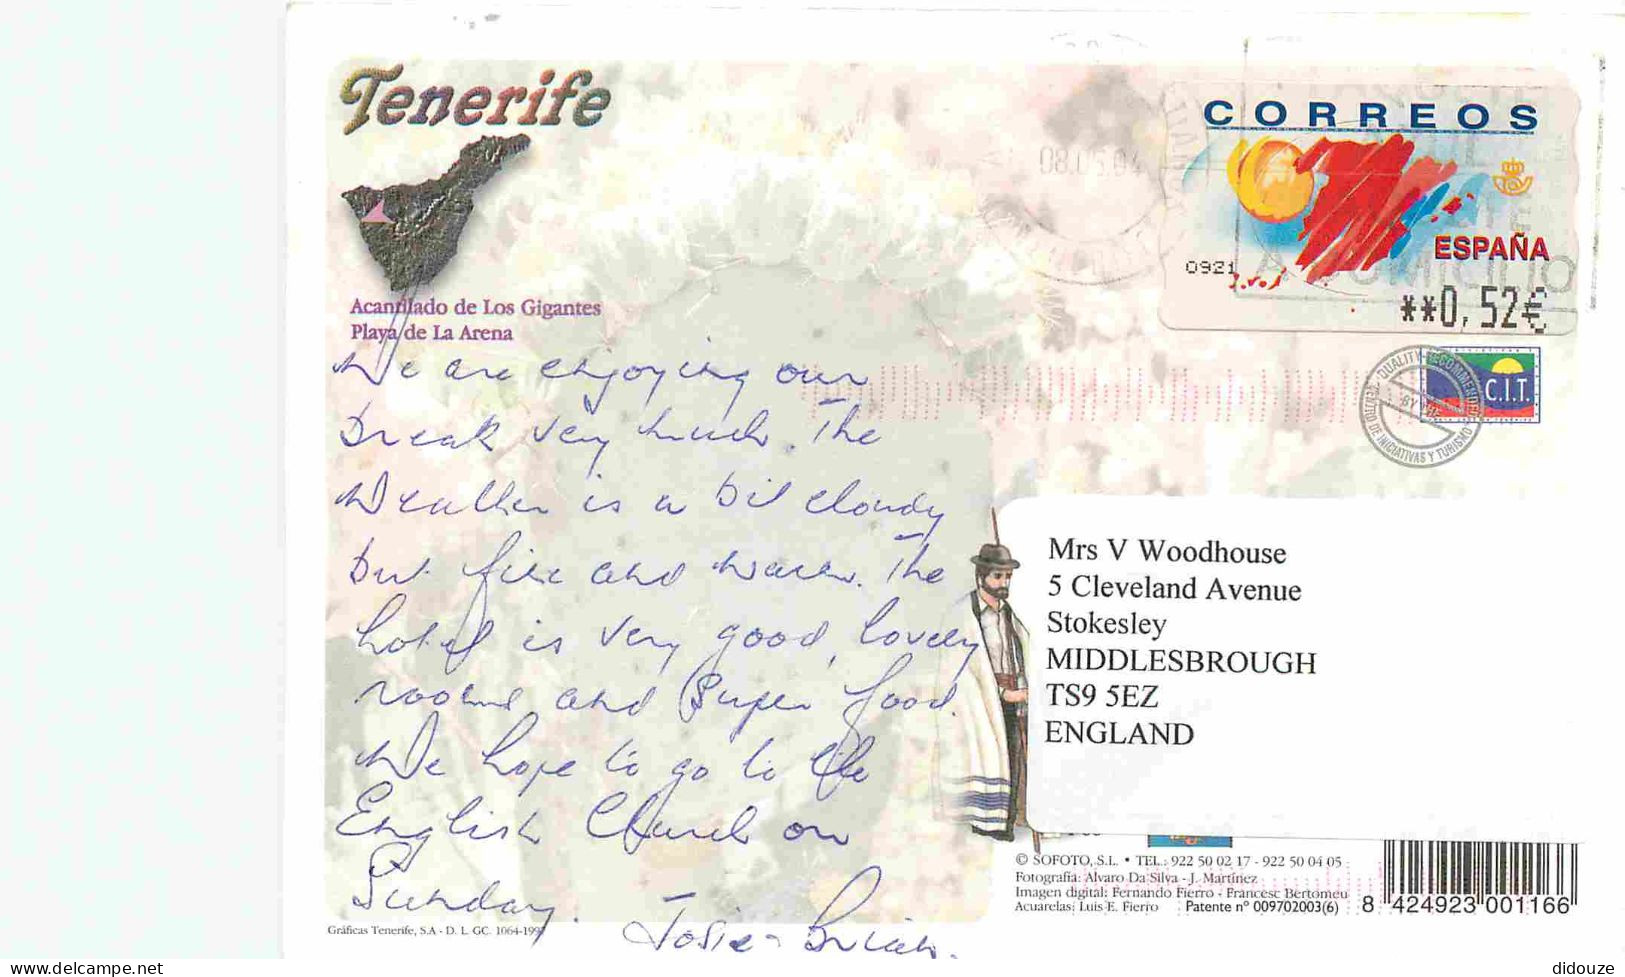 Tenerife
Acantilado de Los Gigantes
Playa de La Arena
We are enjoying our
break very much. The
weather is a bit cloudy
but fine and warm. The
hotel is very good, lovely
rooms and super food.
We hope to go to the
English Church on
Sunday.
Josie - Brian.
Gráficas Tenerife, S.A - D. L. GC. 1064-199
08.05.04
CORREOS
ESPAÑA
0921
**0,52€
DOMICILIO
QUALITY RECOMMENDED
BY THE
CENTRO DE INICIATIVAS Y TURISMO
C.I.T.
Mrs V Woodhouse
5 Cleveland Avenue
Stokesley
MIDDLESBROUGH
TS9 5EZ
ENGLAND
© SOFOTO, S.L. • TEL.: 922 50 02 17 - 922 50 04 05
Fotografía: Alvaro Da Silva - J. Martínez
Imagen digital: Fernando Fierro - Francesc Bertomeu
Acuarelas: Luis E. Fierro Patente nº 009702003(6)
8 424923 001166
didouze